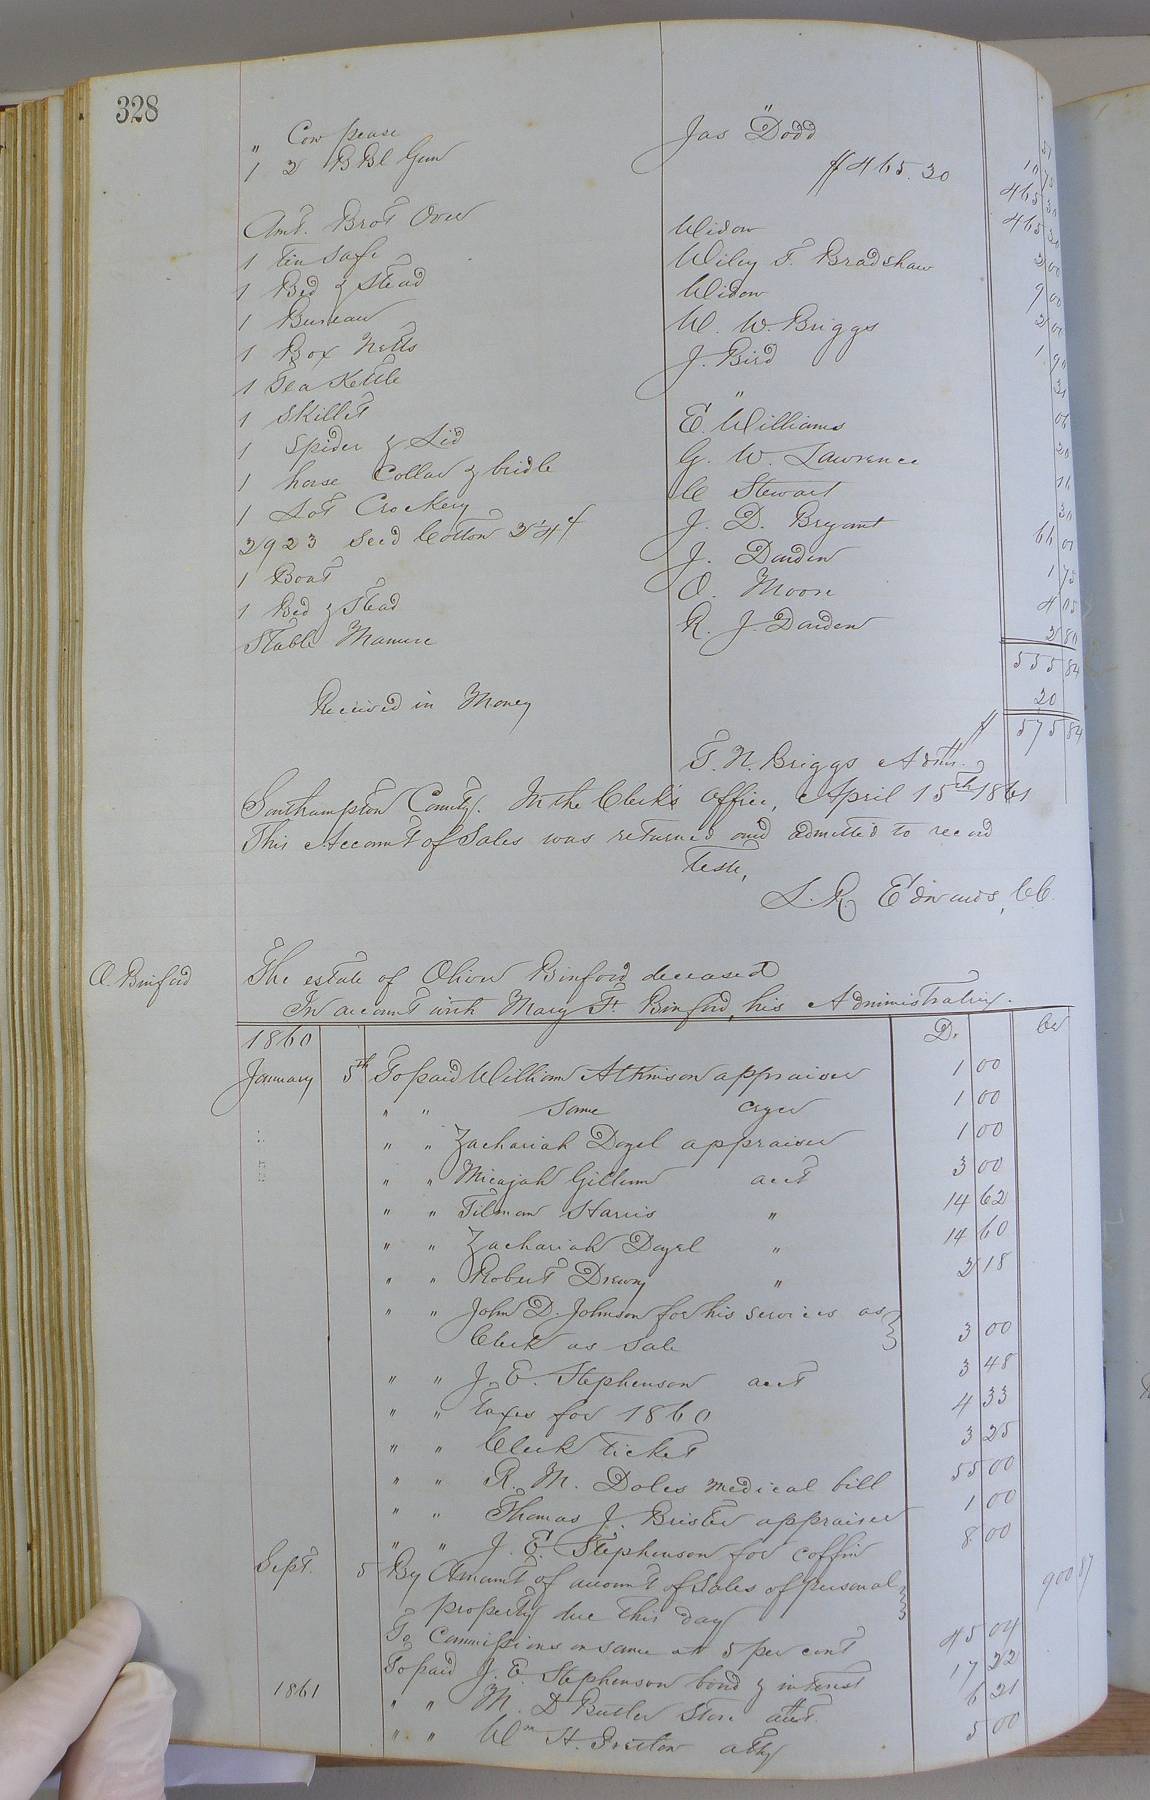 328
" Cow pease " 51
1 2 B Bl Gun Jas Dodd 10 75
$465.30 465 30
Amt. Brot Over 465 30
1 tin Safe Widow 2 00
1 Bed & Stead Wiley T. Bradshaw 9 00
1 Bureau Widow 2 00
1 Box Netts W. W. Briggs 1 90
1 Tea Kettle J. Bird
1 Skillet "
1 Spider & Lid E. Williams 20
1 horse Collar & bridle G. W. Lawrence
1 Lot Crockery C Stewart 30
2923 Seed Cotton J. D. Bryant 66 01
1 Boat J. Darden 1 75
1 Bed & Stead O. Moore 4 05
Stable Manure R. J. Darden 2 80
555 84
Received in Money 20
$ 575 84
T. N. Briggs Adm.
Southampton County. In the Clerk's Office, April 15th 1861
This Account of Sales was returned and admitted to record
Teste,
L. R. Edwards, CC.
O. Binford
The estate of Oliver Binford deceased
In account with Mary F. Binford, his Administratrix.
1860 Dr Cr
January 5th To paid William Atkinson appraiser 1 00
" " Same cryer 1 00
" " Zachariah Dozel appraiser 1 00
" " Micajah Gillum acct 3 00
" " Tilman Harris " 14 62
" " Zachariah Dozel " 14 60
" " Robert Drewry " 2 18
" " John D. Johnson for his services as
Clerk as Sale 3 00
" " J. E. Stephenson acct 3 48
" " Taxes for 1860 4 33
" " Clerk ticket 3 25
" " R. M. Doles medical bill 55 00
" " Thomas J. Brister appraiser 1 00
" " J. E. Stephenson for coffin 8 00
Sept. 5 By Amount of account of Sales of personal
property due this day 900 87
To Commissions on same at 5 per cent 45 04
To paid J. E. Stephenson bond & interest 17 22
1861 " " M. D Butler Store acct. 6 21
" " Wm H. Briston atty 5 00